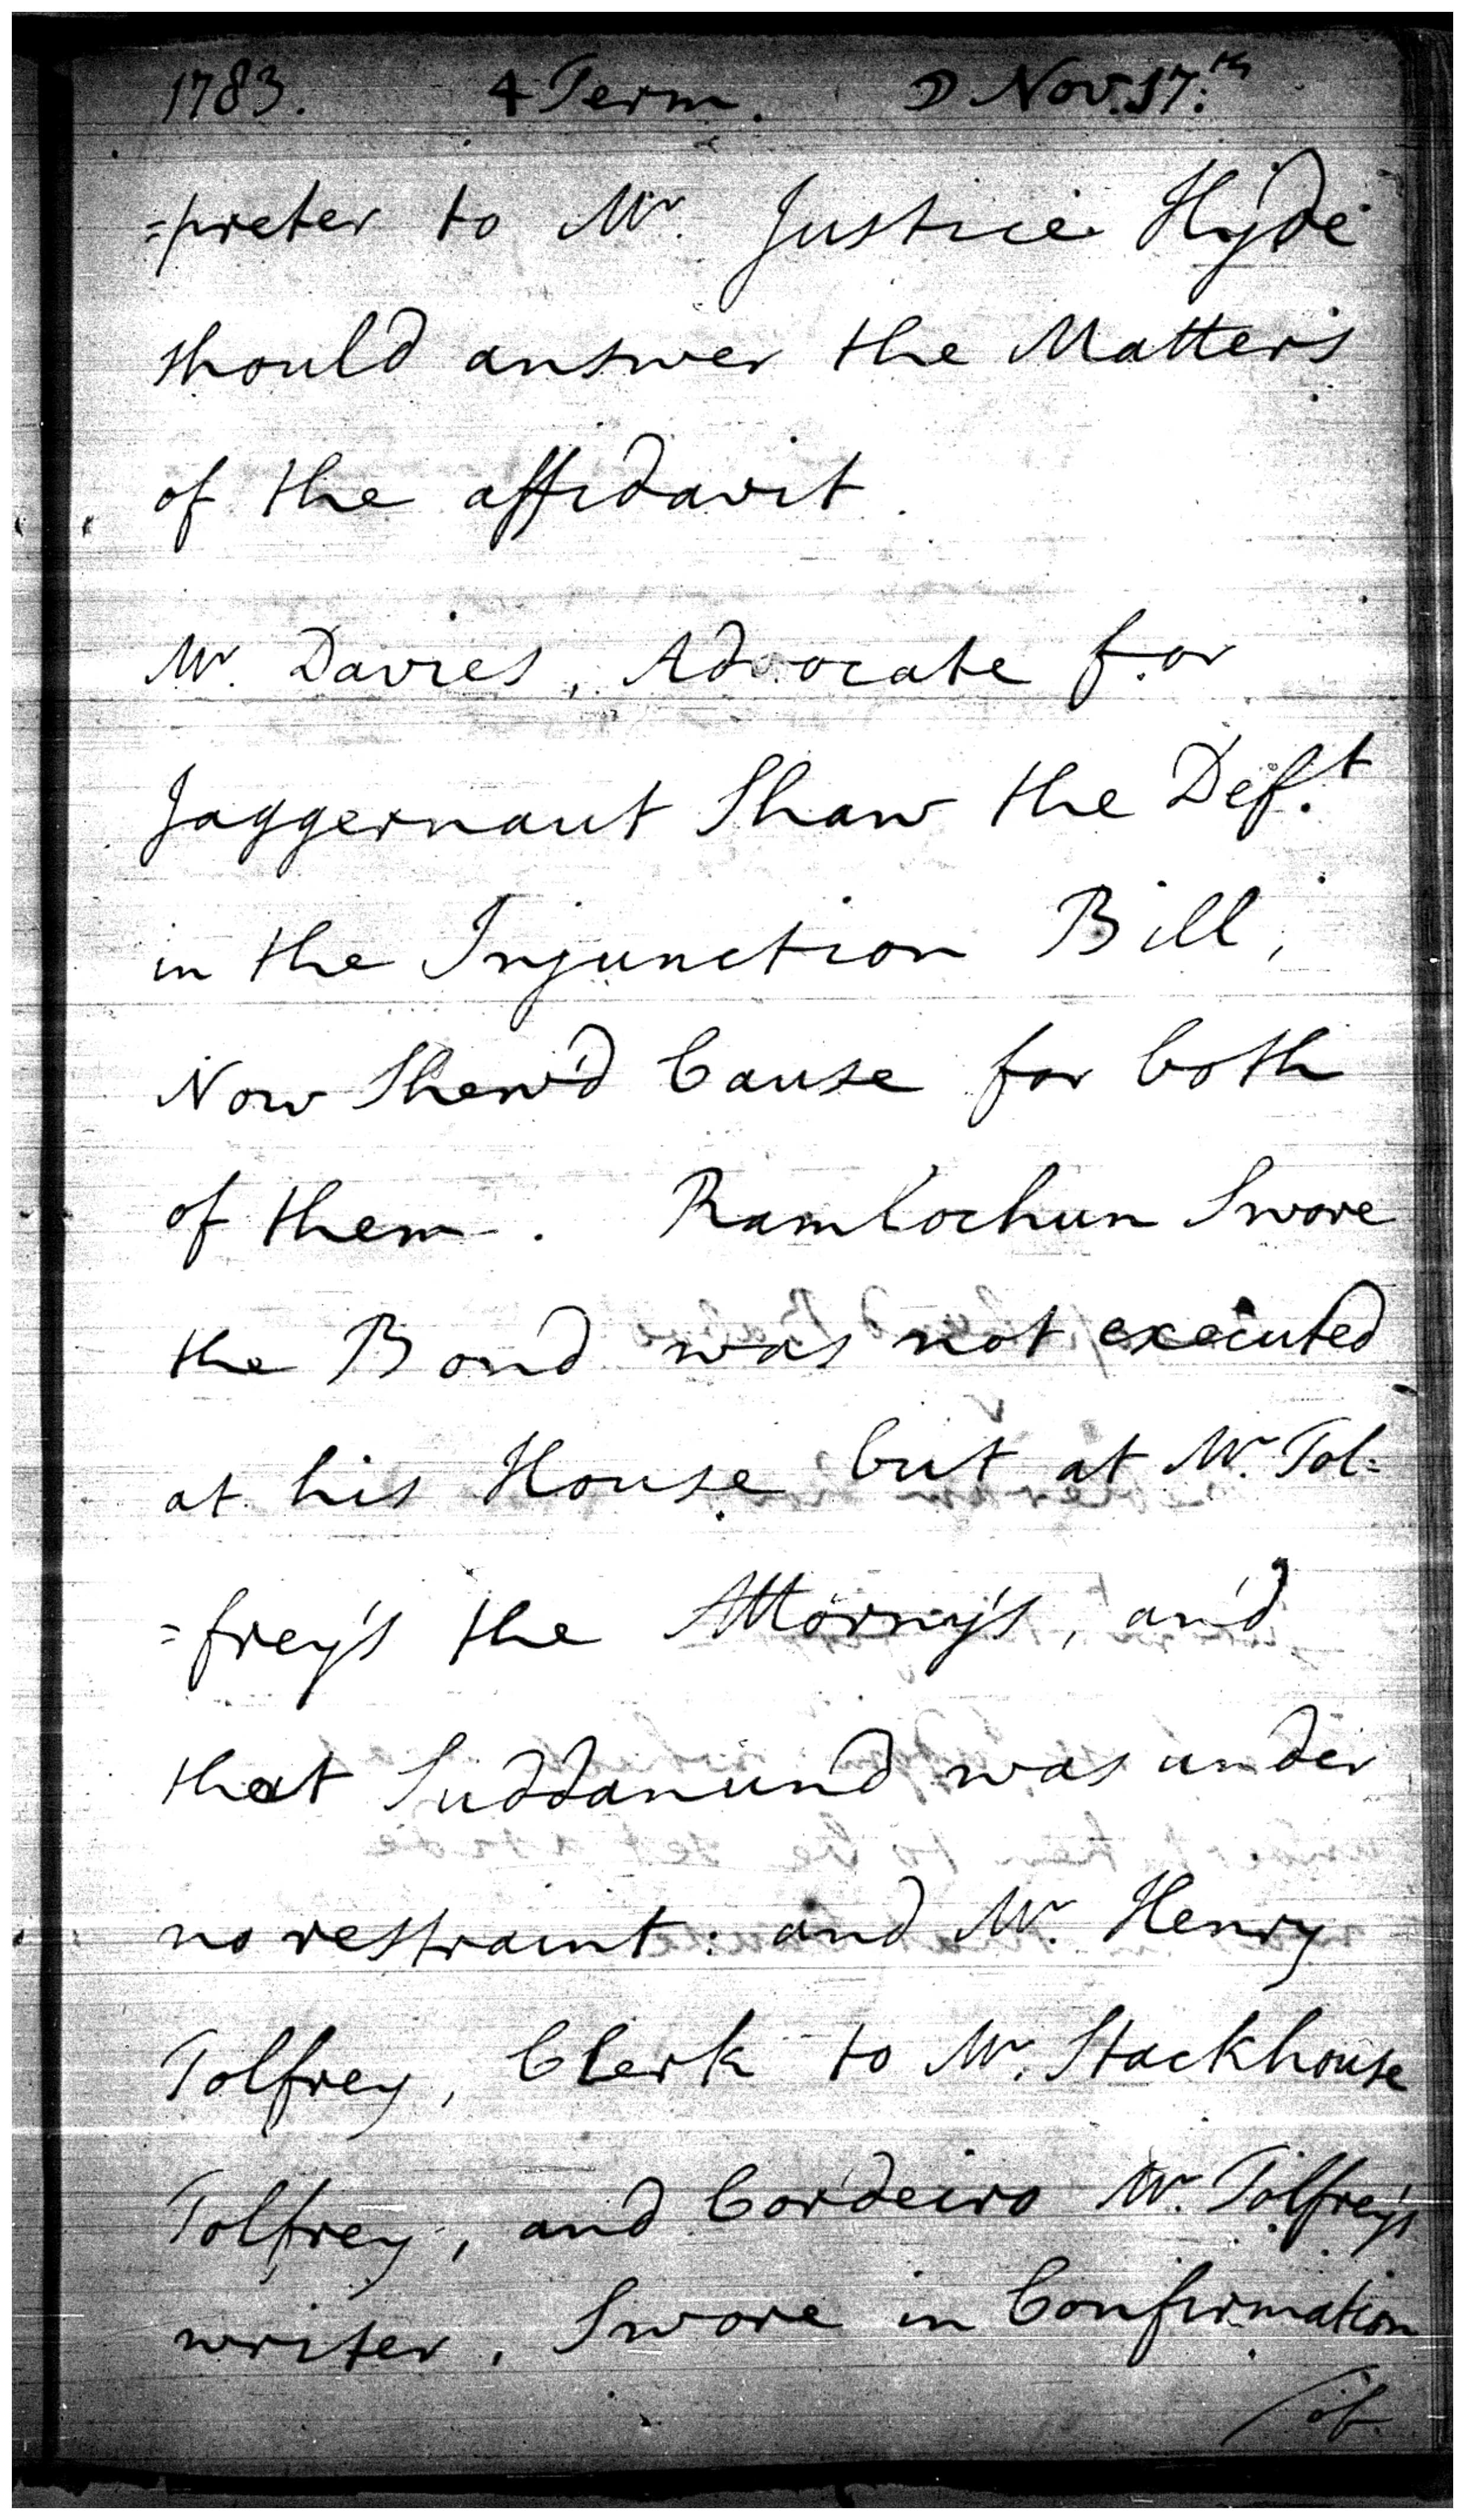 1783. 4 Term. ☽ Nov. 17.th
=preter to Mr. Justice Hyde
should answer the Matters
of the affidavit.
Mr. Davies, Advocate for
Jaggernaut Shaw the Def.t
in the Injunction Bill,
Now Shew'd Cause for both
of them. Ramlochun Swore
the Bond was not executed
at his House but at Mr. Tol=
=frey's the Attorny's, and
that Suddanund was under
no restraint: and Mr. Henry
Tolfrey, Clerk to Mr. Stackhouse
Tolfrey, and Cordeiro Mr. Tolfrey's
writer, Swore in Confirmation
/of